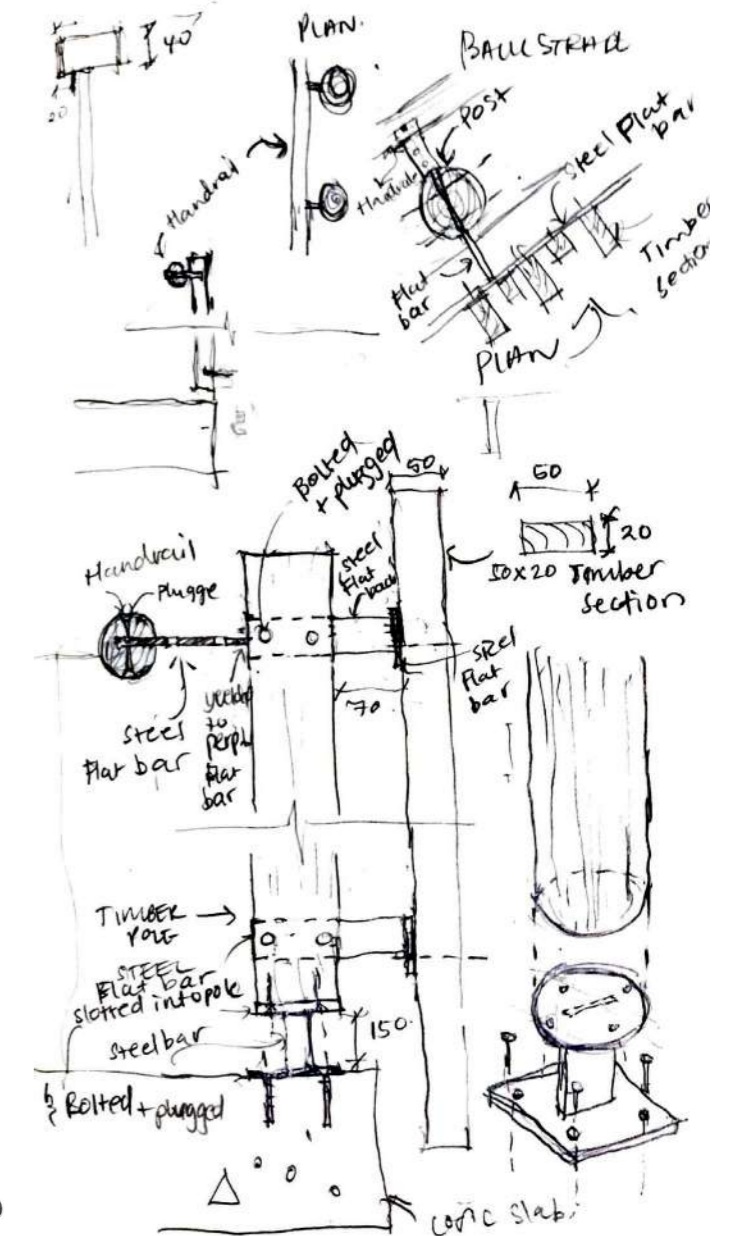 40
20
PLAN.
Handrail
BALLSTRADE
Post
Steel Flat
bar
Handrail
Flat
bar
Timber
section
PLAN
Bolted
+ plugged
50
60
20
50x20 Timber
Section
Handrail
Plugge
steel
Flat
steel
Flat bar
to
perp
Flat
bar
70
Flat
bar
TIMBER
POLE
STEEL
Flat bar
slotted into pole
steel bar
150
Bolted + plugged
conc slab.